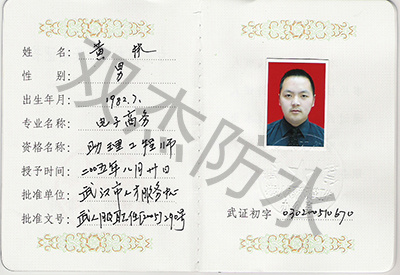 姓 名: 黄 桥
性 别: 男
出生年月: 1982.7.
专业名称: 电子商务
资格名称: 助理工程师
授予时间: 二〇〇五年八月廿日
批准单位: 武汉市人才服务中心
批准文号: 武人服职任[2005]290号
武证初字 030200510670
双杰防水